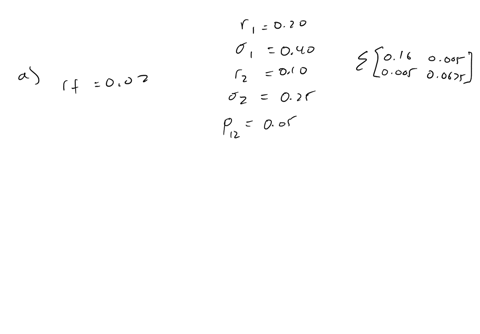 a) rf = 0.02
r₁ = 0.20
σ₁ = 0.40
r₂ = 0.10
σ₂ = 0.25
ρ₁₂ = 0.05
Σ [0.16 0.005
0.005 0.0625]